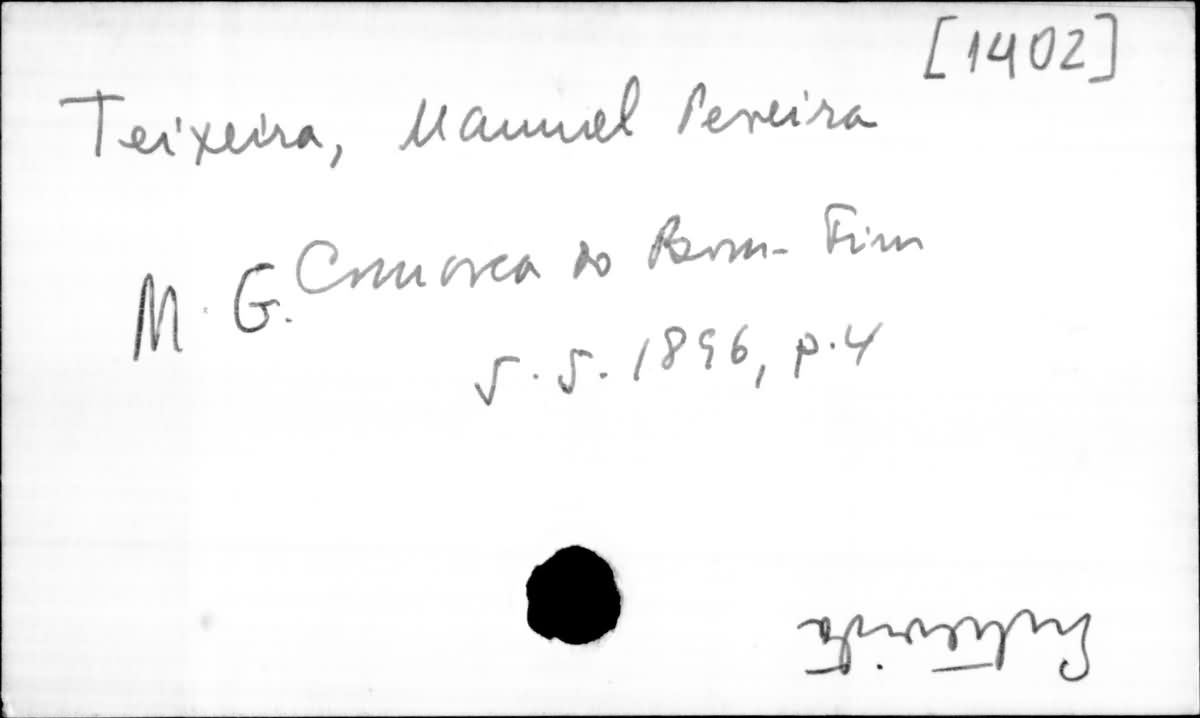 [1402]
Teixeira, Manuel Pereira
M. G. Comarca do Bom-Fim
5.5.1896, p.4